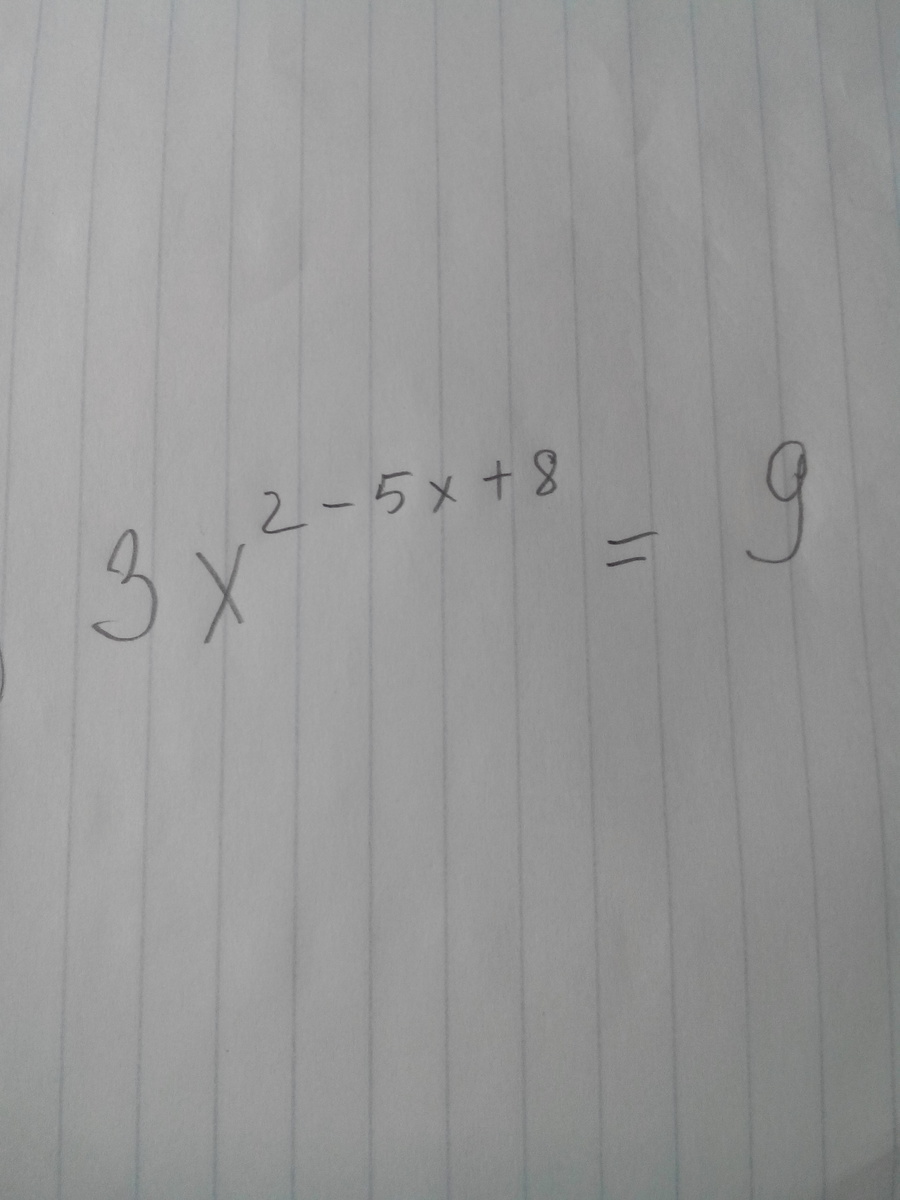 3x^{2-5x+8} = 9